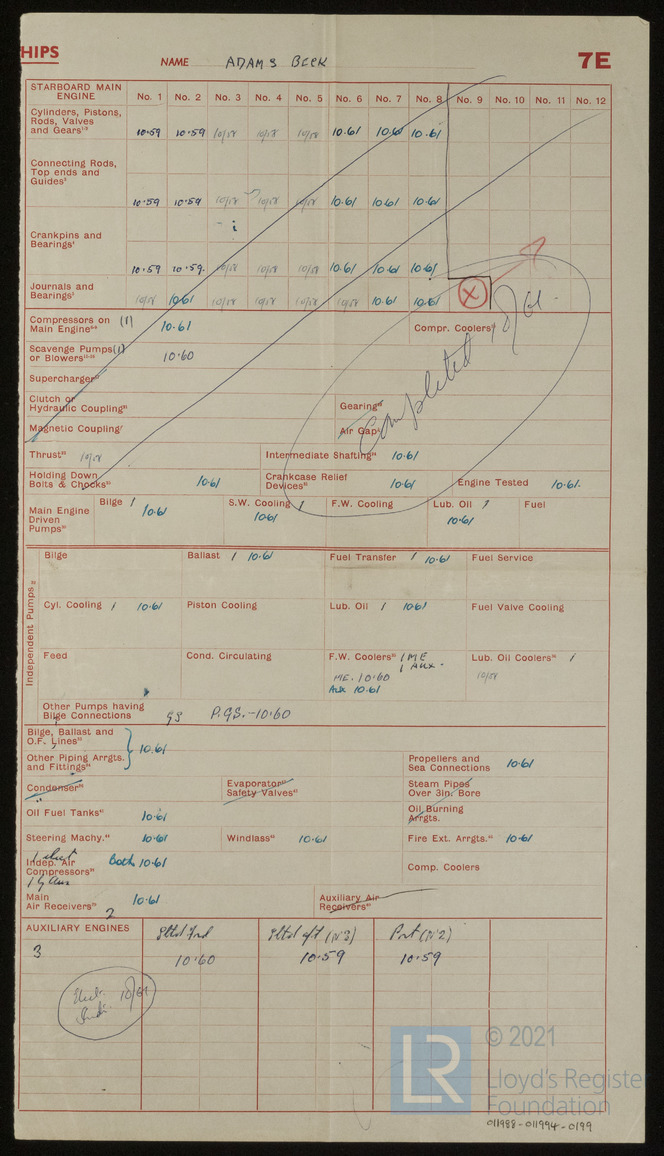 HIPS
NAME ADAMS BECK 7E
STARBOARD MAIN ENGINE No. 1 No. 2 No. 3 No. 4 No. 5 No. 6 No. 7 No. 8 No. 9 No. 10 No. 11 No. 12
Cylinders, Pistons,
Rods, Valves
and Gears 10·59 10·59 10/58 10/58 10/58 10·61 10·61 10·61
Connecting Rods,
Top ends and
Guides 10·59 10·59 10/58 10/58 10/58 10·61 10·61 10·61
Crankpins and
Bearings 10·59 10·59. 10/58 10/58 10/58 10·61 10·61 10·61
Journals and
Bearings 10/58 10·61 10/58 10/58 10/58 10/58 10·61 10·61 X
Compressors on
Main Engine (1) 10·61 Compr. Coolers
Completed 10/61.
Scavenge Pumps (1)
or Blowers 10·60
Supercharger
Clutch or
Hydraulic Coupling Gearing
Magnetic Coupling Air Gap
Thrust 10/58 Intermediate Shafting 10·61
Holding Down
Bolts & Chocks 10·61 Crankcase Relief
Devices 10·61 Engine Tested 10·61.
Main Engine
Driven
Pumps Bilge 1 10·61 S.W. Cooling 1 10·61 F.W. Cooling Lub. Oil 1 10·61 Fuel
Independent Pumps
Bilge Ballast 1 10·61 Fuel Transfer 1 10·61 Fuel Service
Cyl. Cooling 1 10·61 Piston Cooling Lub. Oil 1 10·61 Fuel Valve Cooling
Feed Cond. Circulating F.W. Coolers 1 ME Lub. Oil Coolers 1
1 AUX.
ME. 10/60 10/58
Aux 10.61
Other Pumps having
Bilge Connections GS P.GS.-10·60
Bilge, Ballast and
O.F. Lines
10·61
Other Piping Arrgts.
and Fittings Propellers and
Sea Connections 10·61
Condenser Evaporator
Safety Valves Steam Pipes
Over 3in. Bore
Oil Fuel Tanks 10·61 Oil Burning
Arrgts.
Steering Machy. 10·61 Windlass 10·61 Fire Ext. Arrgts. 10·61
1 elect
Indep. Air
Compressors Both 10·61 Comp. Coolers
Main
Air Receivers 2 10·61 Auxiliary Air
Receivers
AUXILIARY ENGINES Stbd Fwd Stbd aft (No3) Port (No2)
3 10·60 10·59 10·59
Elect. 10/61
© 2021
LR
Lloyd's Register
Foundation
011988-011994-0199